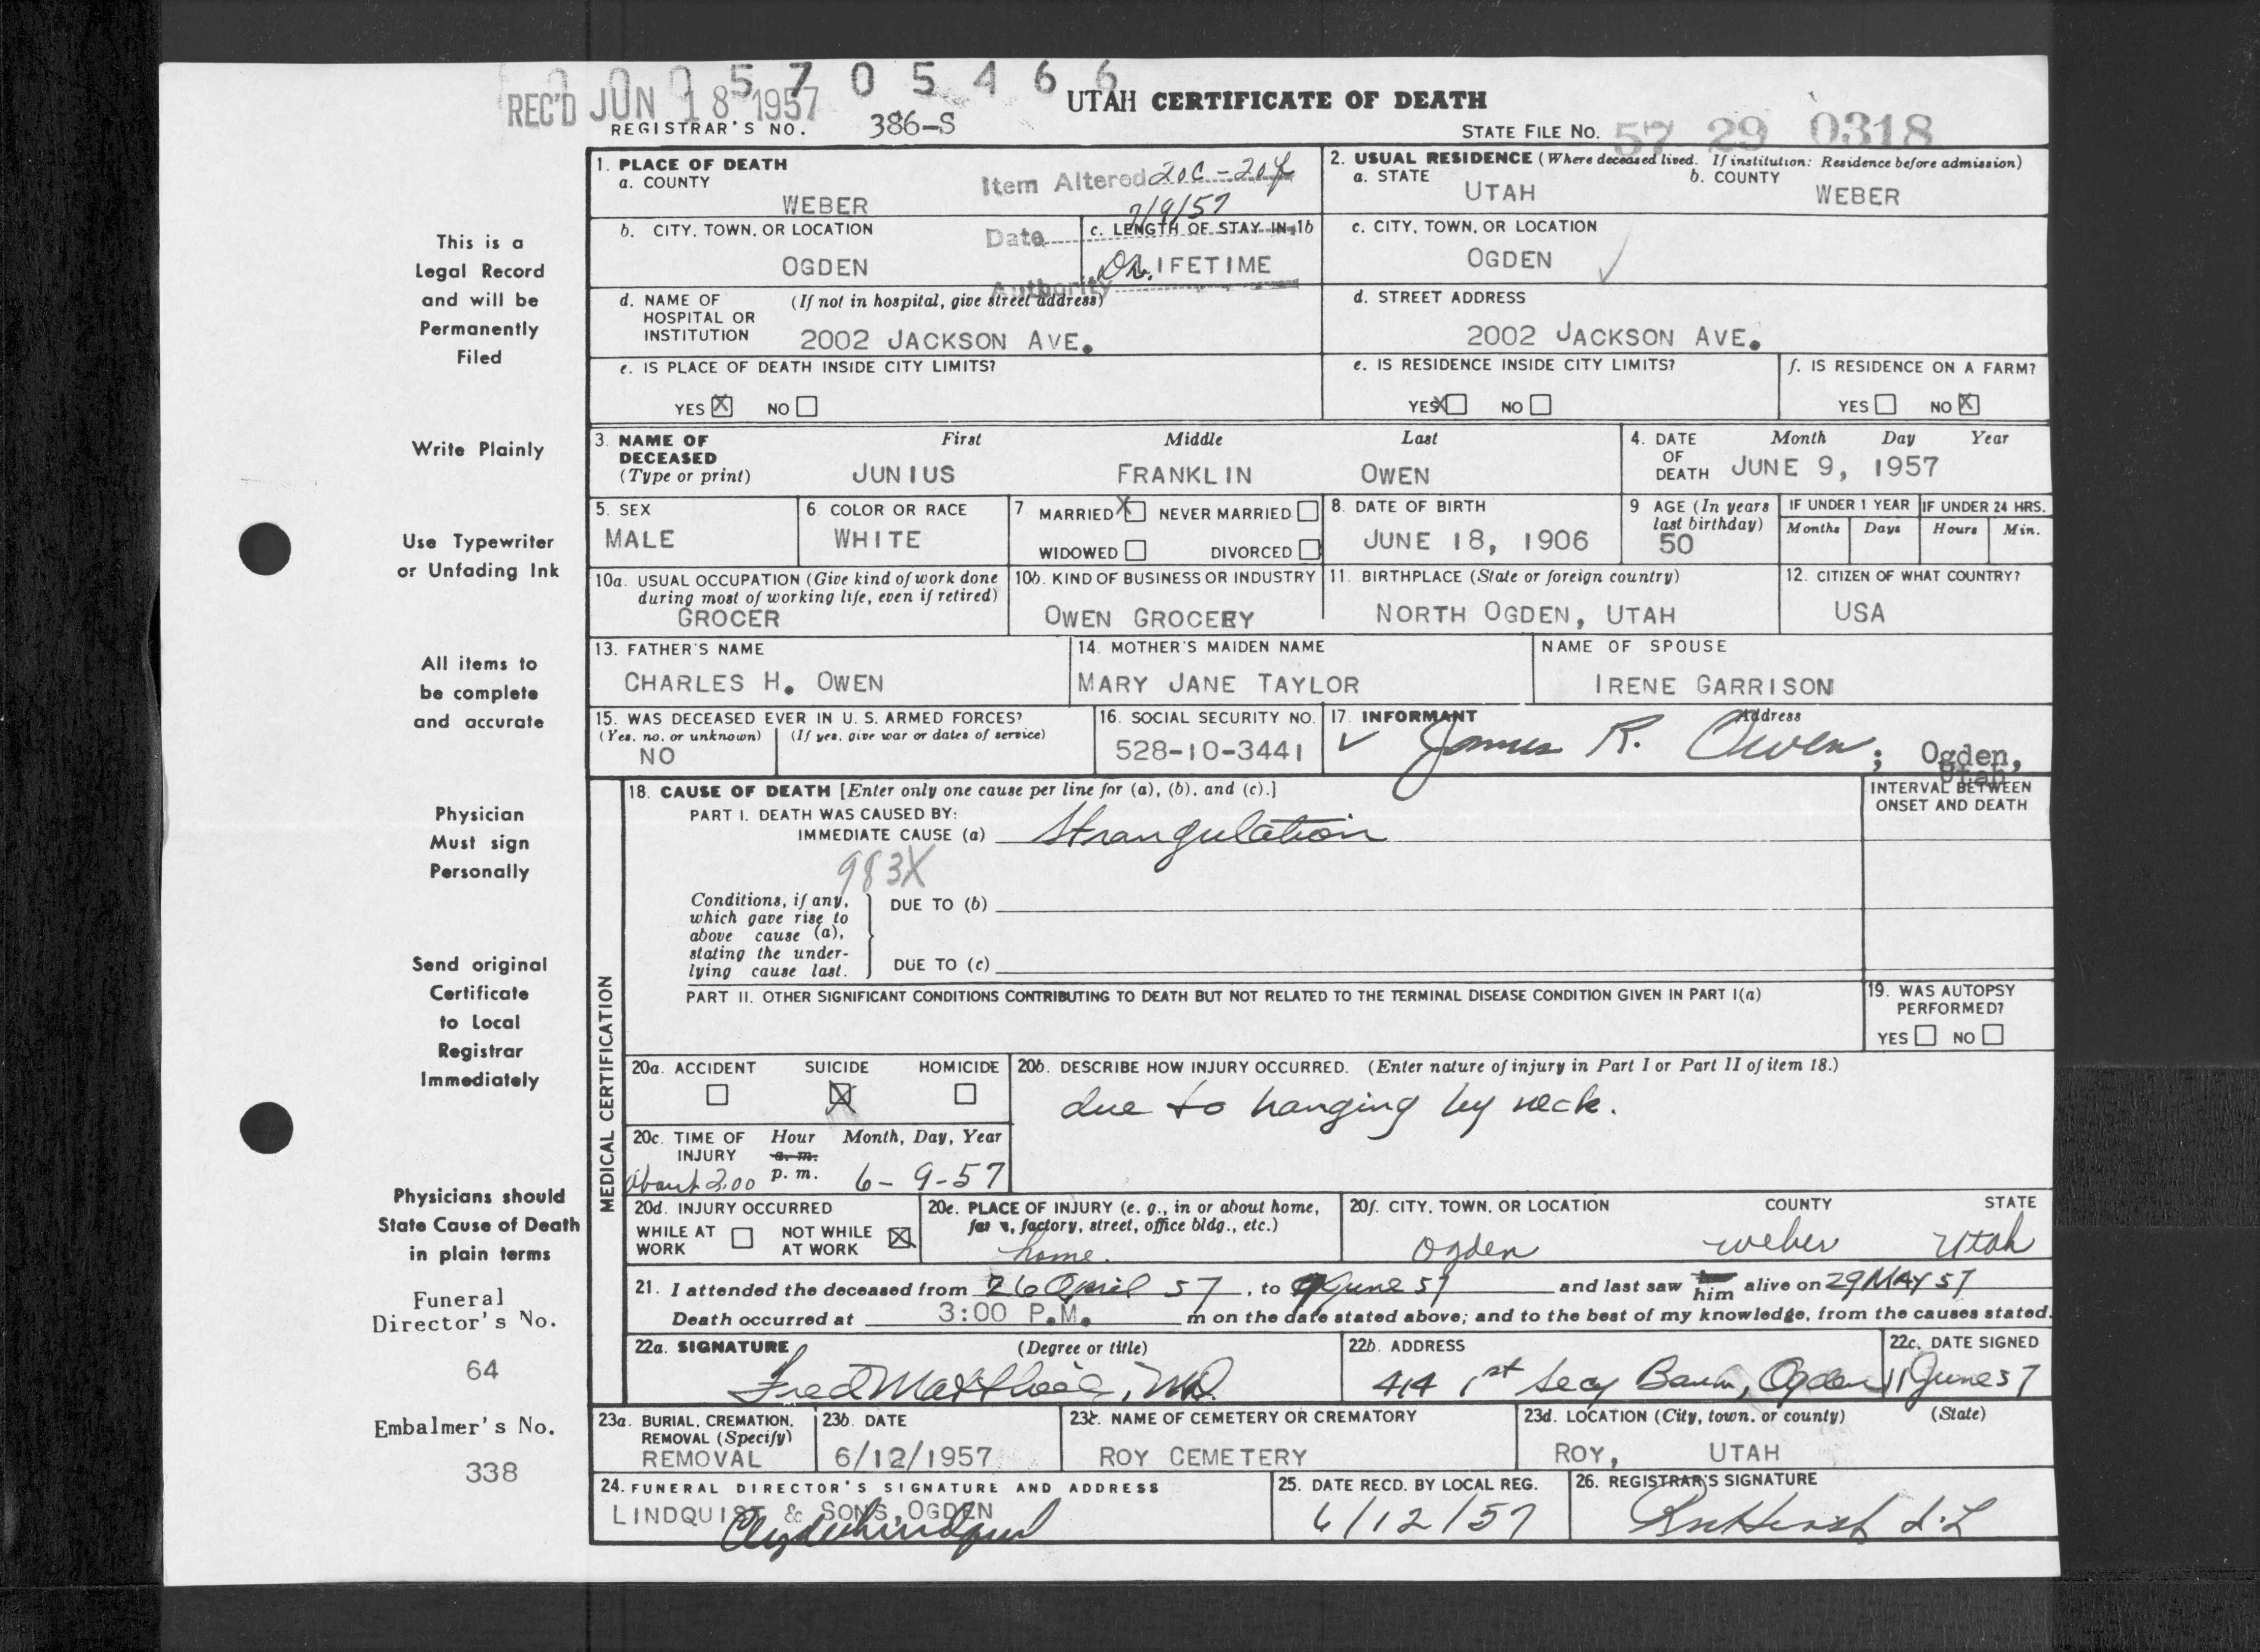 0005705466
REC'D JUN 18 1957
UTAH CERTIFICATE OF DEATH
REGISTRAR'S NO. 386-S
STATE FILE NO. 57 29 0318
This is a
Legal Record
and will be
Permanently
Filed
Write Plainly
Use Typewriter
or Unfading Ink
All items to
be complete
and accurate
Physician
Must sign
Personally
Send original
Certificate
to Local
Registrar
Immediately
Physicians should
State Cause of Death
in plain terms
Funeral
Director's No.
64
Embalmer's No.
338
1. PLACE OF DEATH
a. COUNTY
WEBER
Item Altered 20c - 20f
Date 7/9/57
Authority Dr.
2. USUAL RESIDENCE (Where deceased lived. If institution: Residence before admission)
a. STATE
UTAH
b. COUNTY
WEBER
b. CITY, TOWN, OR LOCATION
OGDEN
c. LENGTH OF STAY IN 1b
LIFETIME
c. CITY, TOWN, OR LOCATION
OGDEN
d. NAME OF HOSPITAL OR INSTITUTION
(If not in hospital, give street address)
2002 JACKSON AVE.
d. STREET ADDRESS
2002 JACKSON AVE.
e. IS PLACE OF DEATH INSIDE CITY LIMITS?
YES X NO
e. IS RESIDENCE INSIDE CITY LIMITS?
YES X NO
f. IS RESIDENCE ON A FARM?
YES NO X
3. NAME OF DECEASED (Type or print)
First Middle Last
JUNIUS FRANKLIN OWEN
4. DATE OF DEATH
Month Day Year
JUNE 9, 1957
5. SEX
MALE
6. COLOR OR RACE
WHITE
7. MARRIED X NEVER MARRIED
WIDOWED DIVORCED
8. DATE OF BIRTH
JUNE 18, 1906
9 AGE (In years last birthday)
50
IF UNDER 1 YEAR
Months Days
IF UNDER 24 HRS.
Hours Min.
10a. USUAL OCCUPATION (Give kind of work done during most of working life, even if retired)
GROCER
10b. KIND OF BUSINESS OR INDUSTRY
OWEN GROCERY
11. BIRTHPLACE (State or foreign country)
NORTH OGDEN, UTAH
12. CITIZEN OF WHAT COUNTRY?
USA
13. FATHER'S NAME
CHARLES H. OWEN
14. MOTHER'S MAIDEN NAME
MARY JANE TAYLOR
NAME OF SPOUSE
IRENE GARRISON
15. WAS DECEASED EVER IN U. S. ARMED FORCES?
(Yes, no, or unknown) (If yes, give war or dates of service)
NO
16. SOCIAL SECURITY NO.
528-10-3441
17. INFORMANT Address
James R. Owen; Ogden, Utah
18. CAUSE OF DEATH [Enter only one cause per line for (a), (b), and (c).]
PART I. DEATH WAS CAUSED BY:
IMMEDIATE CAUSE (a) Strangulation
983X
Conditions, if any, which gave rise to above cause (a), stating the underlying cause last.
DUE TO (b)
DUE TO (c)
INTERVAL BETWEEN ONSET AND DEATH
PART II. OTHER SIGNIFICANT CONDITIONS CONTRIBUTING TO DEATH BUT NOT RELATED TO THE TERMINAL DISEASE CONDITION GIVEN IN PART I(a)
19. WAS AUTOPSY PERFORMED?
YES NO
MEDICAL CERTIFICATION
20a. ACCIDENT SUICIDE X HOMICIDE
20b. DESCRIBE HOW INJURY OCCURRED. (Enter nature of injury in Part I or Part II of item 18.)
due to hanging by neck.
20c. TIME OF INJURY
Hour a. m. p. m. Month, Day, Year
About 2:00 6-9-57
20d. INJURY OCCURRED
WHILE AT WORK NOT WHILE AT WORK X
20e. PLACE OF INJURY (e. g., in or about home, farm, factory, street, office bldg., etc.)
home.
20f. CITY, TOWN, OR LOCATION COUNTY STATE
Ogden Weber Utah
21. I attended the deceased from 26 April 57, to 9 June 57 and last saw him alive on 29 MAY 57
Death occurred at 3:00 P.M. m on the date stated above; and to the best of my knowledge, from the causes stated.
22a. SIGNATURE (Degree or title)
Fred Matthews, MD.
22b. ADDRESS
414 1st Secy Bank, Ogden
22c. DATE SIGNED
11 June 57
23a. BURIAL, CREMATION, REMOVAL (Specify)
REMOVAL
23b. DATE
6/12/1957
23c. NAME OF CEMETERY OR CREMATORY
ROY CEMETERY
23d. LOCATION (City, town, or county) (State)
ROY, UTAH
24. FUNERAL DIRECTOR'S SIGNATURE AND ADDRESS
LINDQUIST & SONS, OGDEN
25. DATE RECD. BY LOCAL REG.
6/12/57
26. REGISTRAR'S SIGNATURE